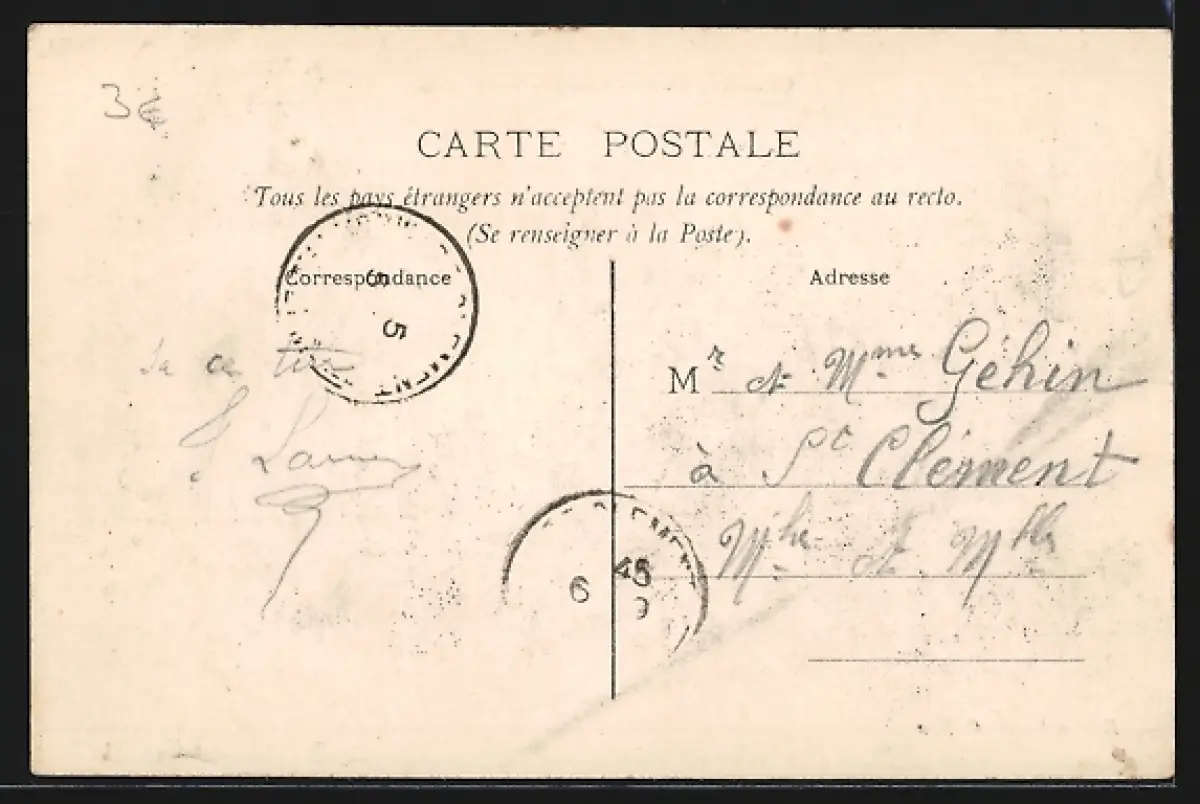 3€
CARTE POSTALE
Tous les pays étrangers n'acceptent pas la correspondance au recto.
(Se renseigner à la Poste).
Correspondance
Adresse
5
5
Mr et Mme Géhin
à St Clément
Mthe et Mlle
CLEMENT
6